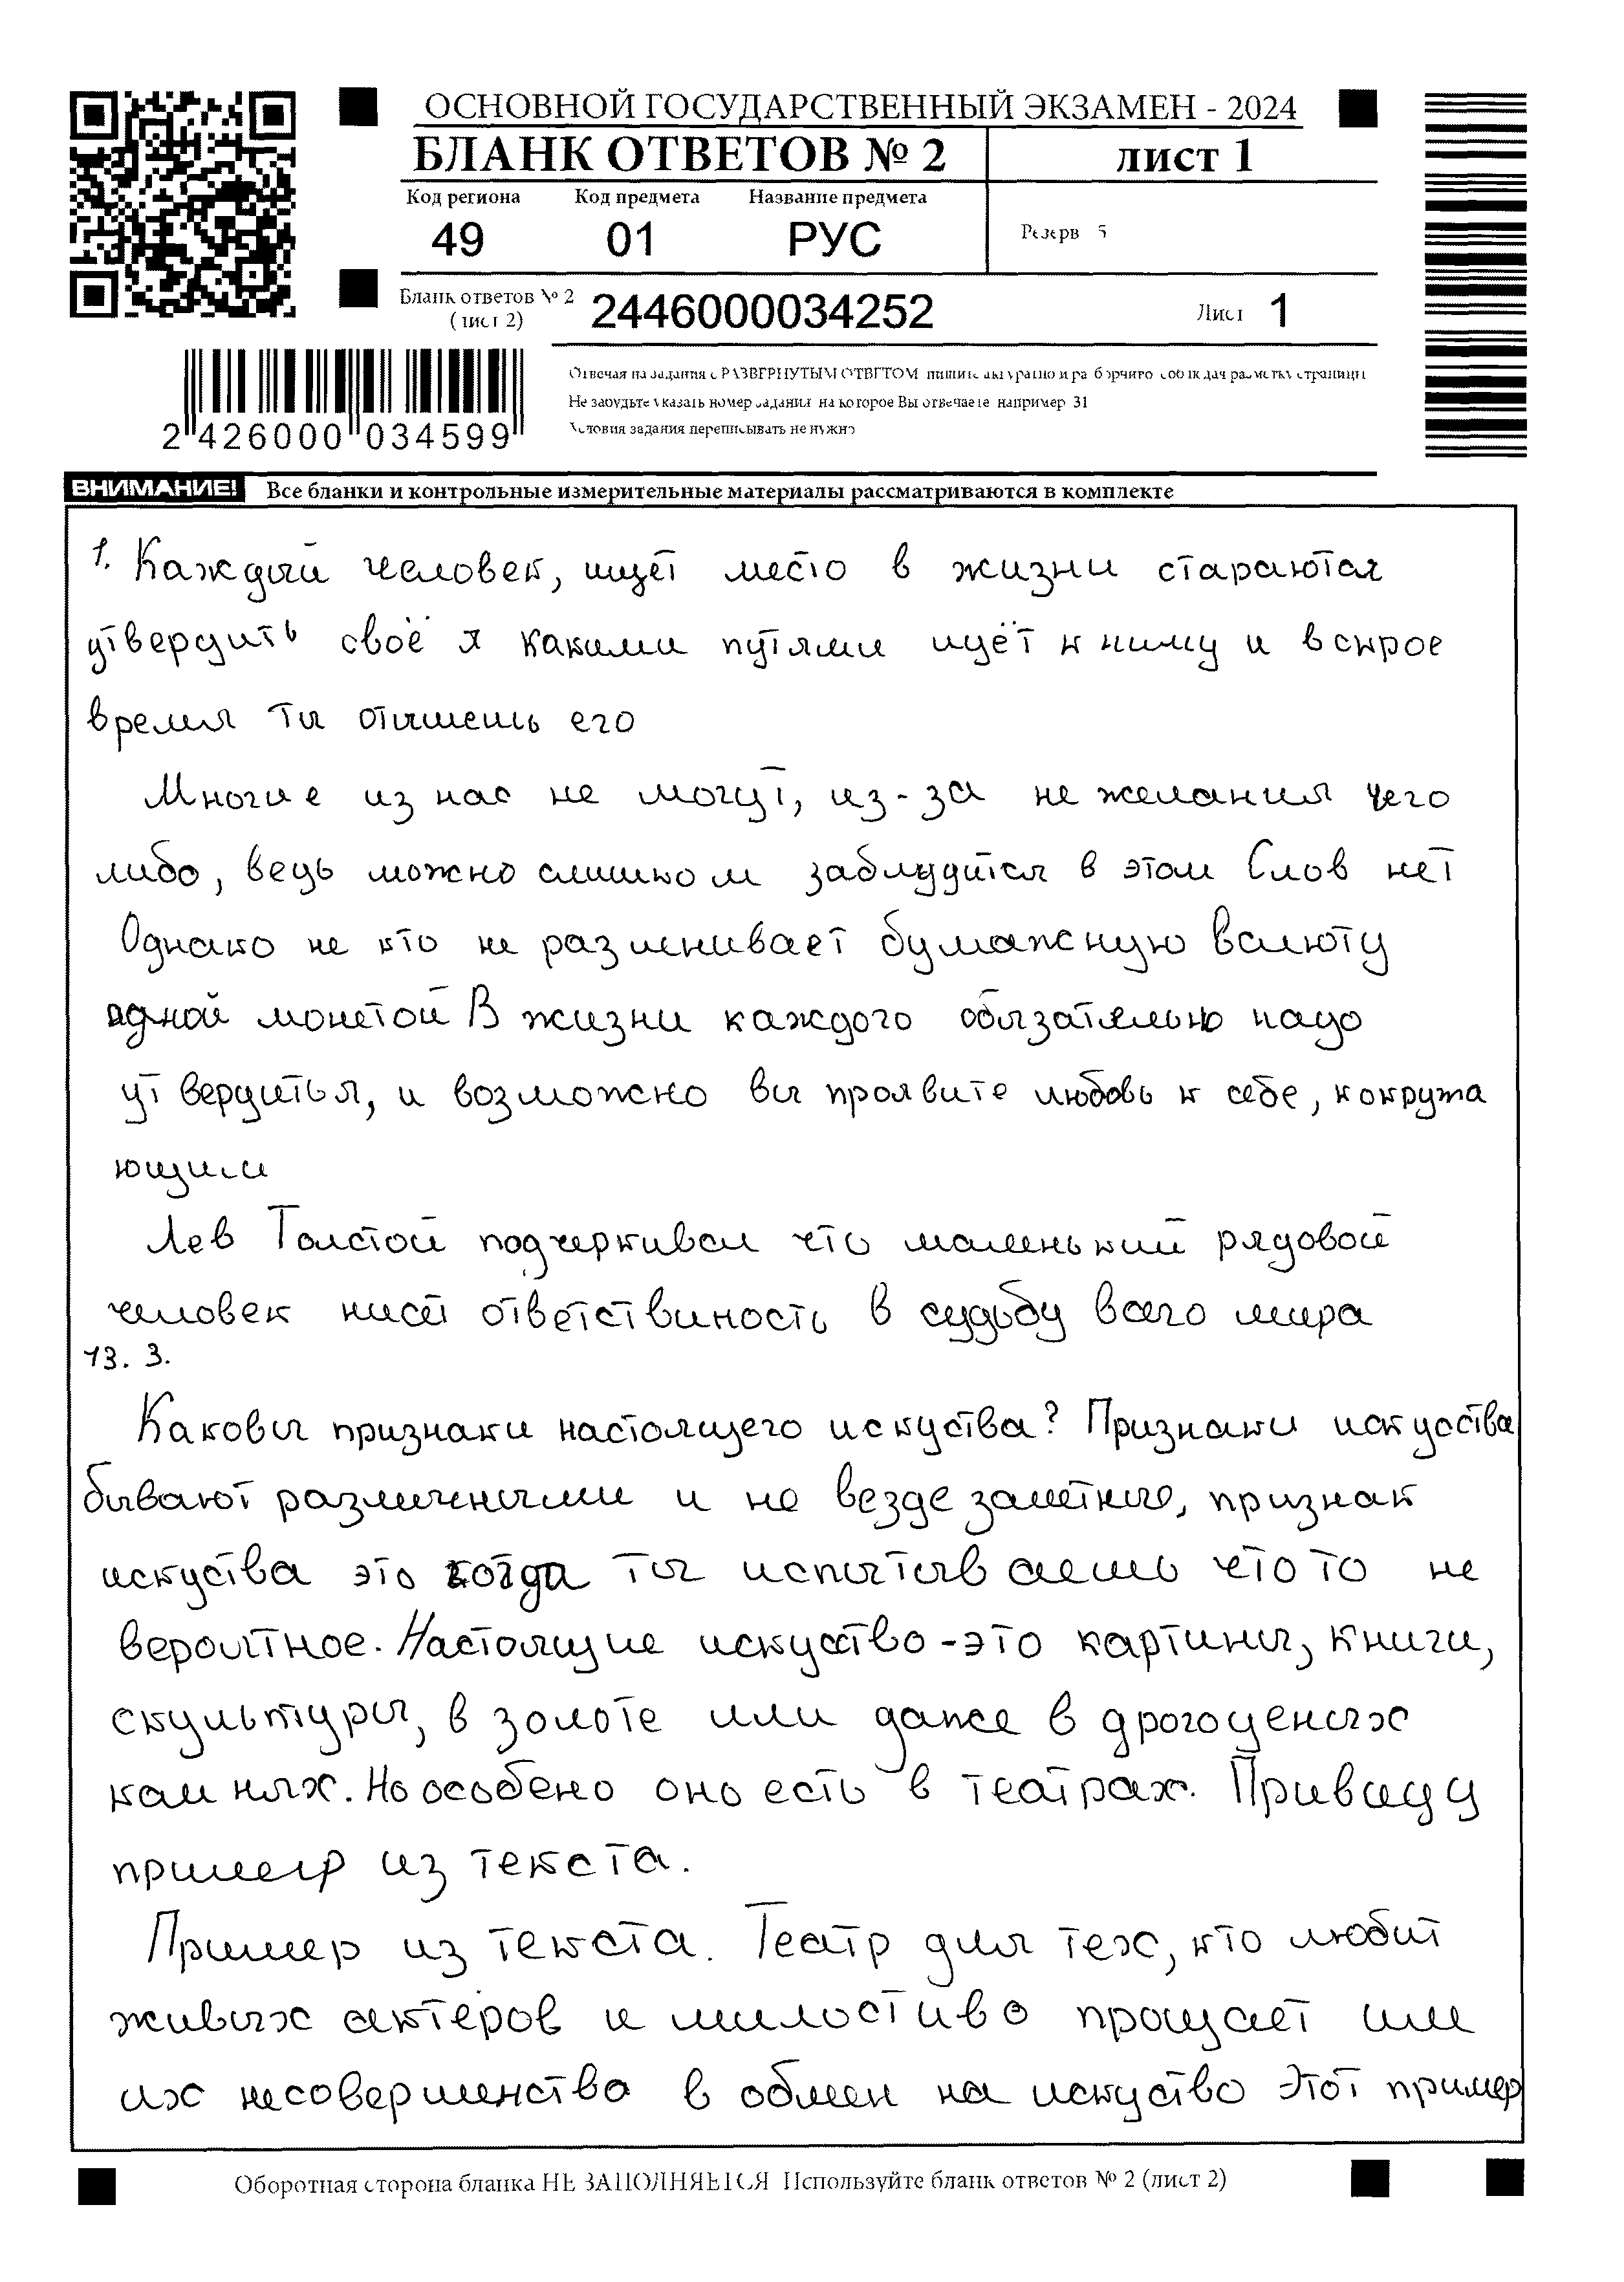 ОСНОВНОЙ ГОСУДАРСТВЕННЫЙ ЭКЗАМЕН - 2024
БЛАНК ОТВЕТОВ № 2
лист 1
Код региона Код предмета Название предмета
49 01 РУС
Резерв 5
Бланк ответов № 2
(лист 2)
2446000034252
Лист 1
2 426000 034599
Отвечая на задания с РАЗВЕРНУТЫМ ОТВЕТОМ пишите аккуратно и разборчиво соблюдая разметку страницы
Не забудьте указать номер задания на которое Вы отвечаете например 31
Условия задания переписывать не нужно
ВНИМАНИЕ! Все бланки и контрольные измерительные материалы рассматриваются в комплекте
1. Каждый человек, ищет место в жизни стараются
утвердить своё я какими путями идёт к ниму и вскрое
время ты отишешь его
Многие из нас не могут, из-за не желания чего
либо, ведь можно слишком заблудится в этом Слов нет
Однако не кто не размнивает бумажную валюту
одной монетой В жизни каждого обязательно надо
утвердиться, и возможно вы проявите любовь к себе, кокружа
ющим
Лев Толстой подчеркивал что маленький рядовой
человек нисет ответствиность в судьбу всего мира
13. 3.
Каковы признаки настоящего искуства? Признаки искусства
бывают различными и не везде заметные, признак
искуства это когда ты испытываешь что то не
вероятное. Настоящие искусство - это картины, книги,
скульптуры, в золоте или даже в дрогоценых
камнях. Но особено оно есть в театрах. Привиду
пример из текста.
Пример из текста. Театр для тех, кто любит
живых актеров и милостиво прощает им
их несовершенства в обмен на искуство Этот пример
Оборотная сторона бланка НЕ ЗАПОЛНЯЕТСЯ Используйте бланк ответов № 2 (лист 2)